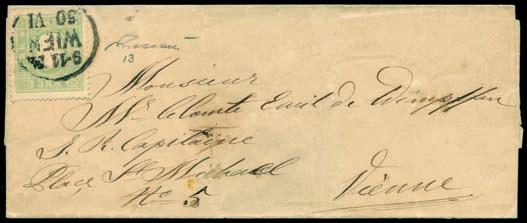 9-11
WIEN
30 VI
13
Monsieur
Mr. le Comte Emil de Wimpffen
I. R. Capitaine
Place St Michael
No. 5
Vienne